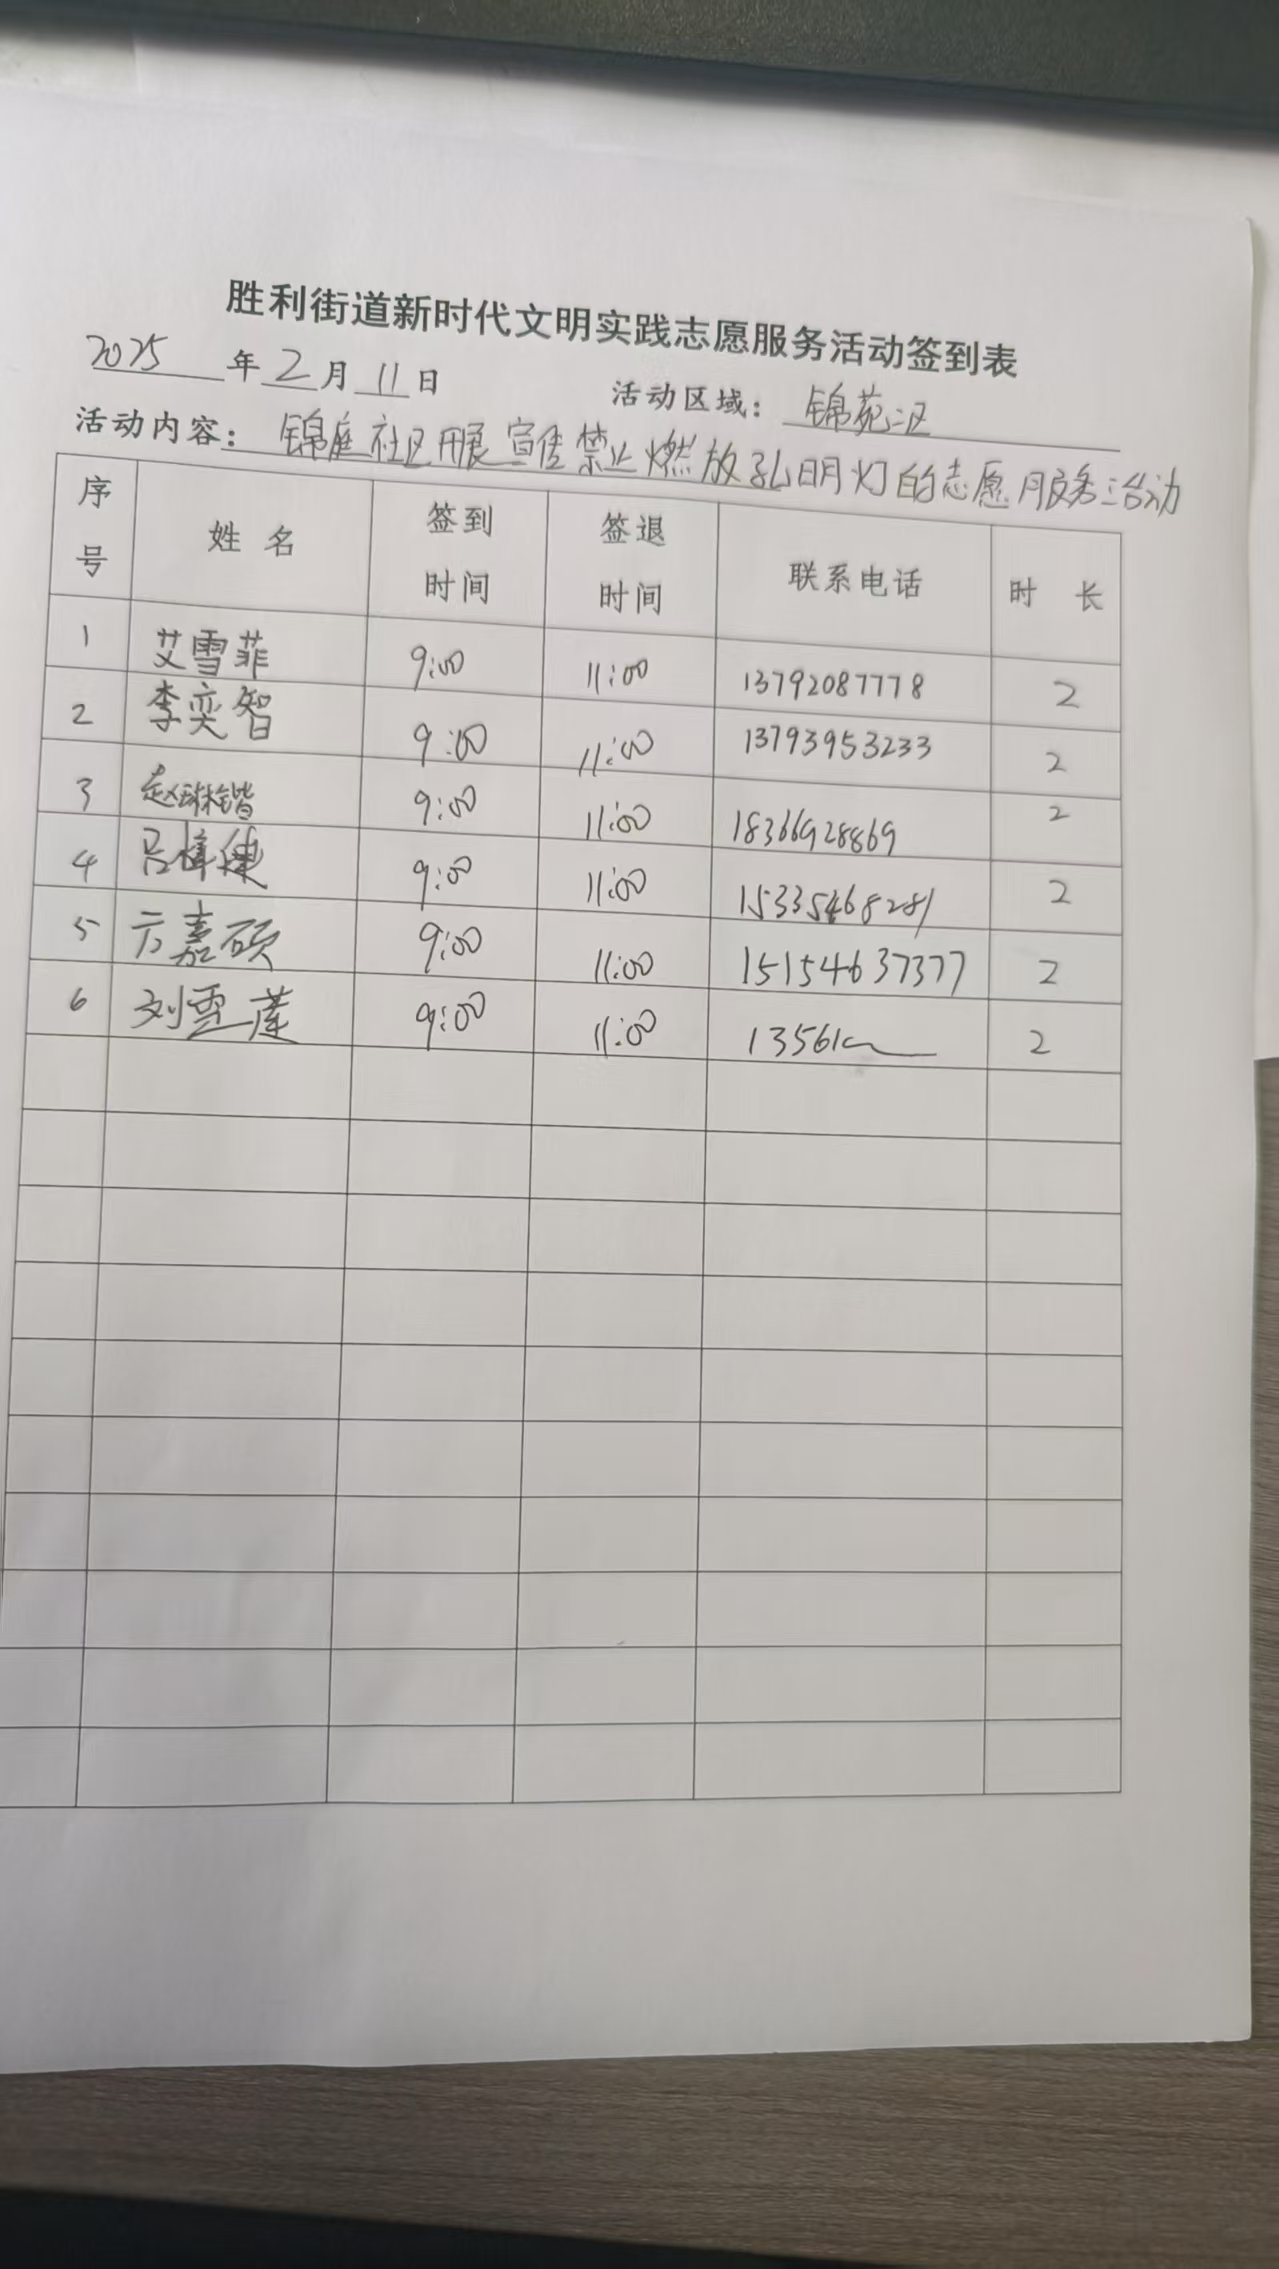 胜利街道新时代文明实践志愿服务活动签到表
2025年2月11日 活动区域：锦苑二区
活动内容：锦庭社区开展宣传禁止燃放孔明灯的志愿服务活动
序号 姓名 签到时间 签退时间 联系电话 时长
1 艾雪菲 9:00 11:00 13792087778 2
2 李奕智 9:00 11:00 13793953233 2
3 赵琳锴 9:00 11:00 18366928869 2
4 吕 9:00 11:00 15335468281 2
5 方嘉硕 9:00 11:00 15154637377 2
6 刘雪莲 9:00 11:00 13561 2